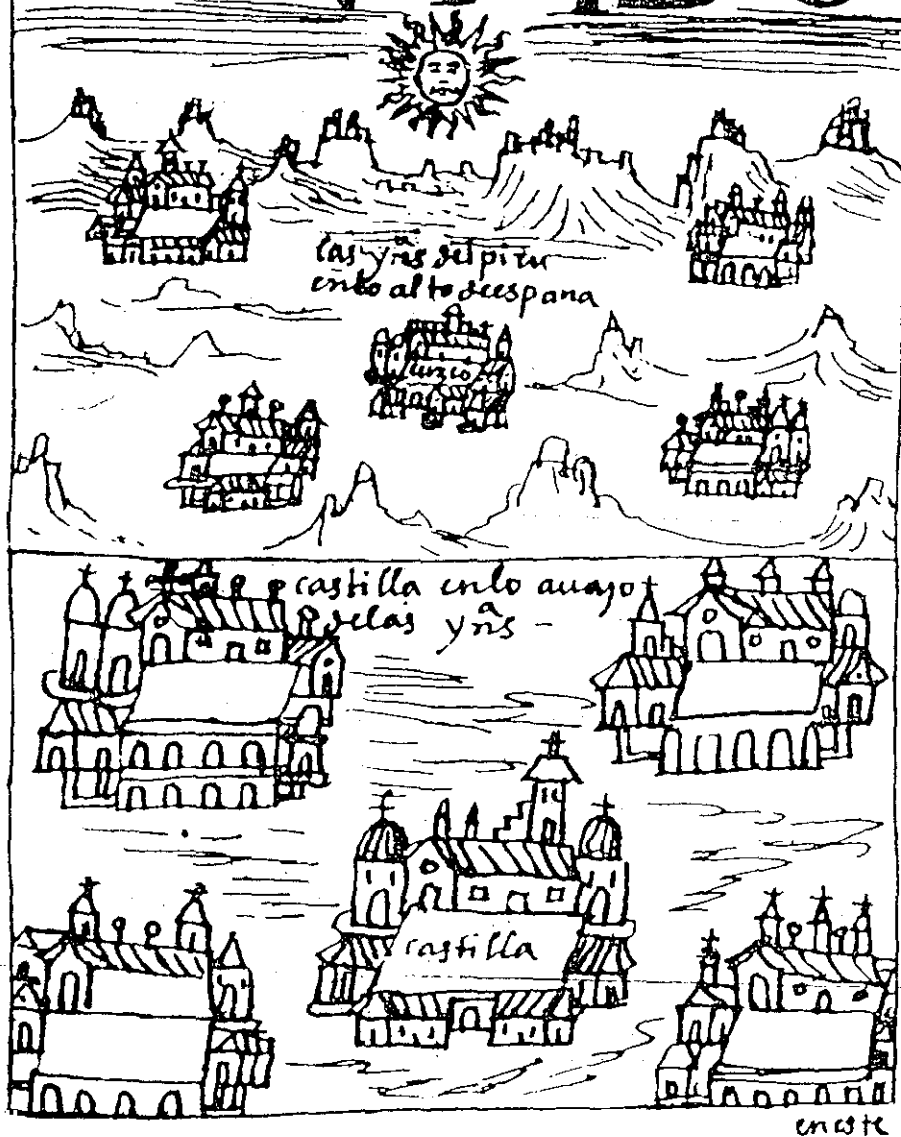 las yñs del piru
en lo alto de españa
cuzco
castilla en lo auajo
de las yñs -
castilla
en este